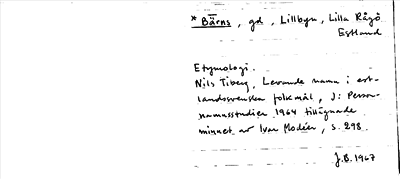 * Bärns, gd, Lillbyn, Lilla Rågö
Estland
Etymologi.
Nils Tiberg, Levande namn i est-
landssvenska folkmål, I: Person-
namnsstudier 1964 tillägnade
minnet av Ivar Modéer, s. 298.
J.B. 1967